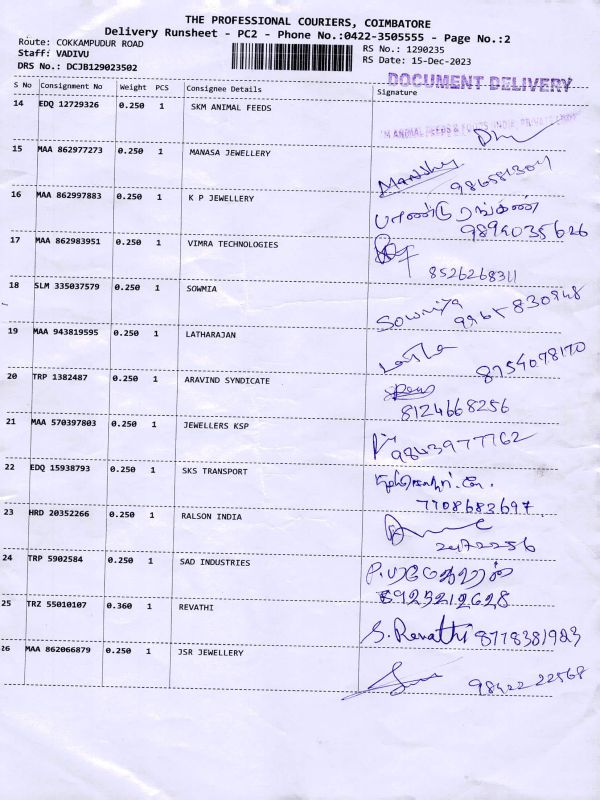 THE PROFESSIONAL COURIERS, COIMBATORE
Delivery Runsheet - PC2 - Phone No.:0422-3505555 - Page No.:2
Route: COKKAMPUDUR ROAD
Staff: VADIVU
DRS No.: DCJB129023502
RS No.: 1290235
RS Date: 15-Dec-2023
DOCUMENT DELIVERY
S No Consignment No Weight PCS Consignee Details Signature
14 EDQ 12729326 0.250 1 SKM ANIMAL FEEDS
15 MAA 862977273 0.250 1 MANASA JEWELLERY
16 MAA 862997883 0.250 1 K P JEWELLERY
பாண்டுரங்கன்
9894035626
17 MAA 862983951 0.250 1 VIMRA TECHNOLOGIES
8526268311
18 SLM 335037579 0.250 1 SOWMIA
Sowmiya 9965830948
19 MAA 943819595 0.250 1 LATHARAJAN
8754078170
20 TRP 1382487 0.250 1 ARAVIND SYNDICATE
8124668256
21 MAA 570397803 0.250 1 JEWELLERS KSP
9843977762
22 EDQ 15938793 0.250 1 SKS TRANSPORT
7708683697
23 HRD 20352266 0.250 1 RALSON INDIA
24 TRP 5902584 0.250 1 SAD INDUSTRIES
8925212628
25 TRZ 55010107 0.360 1 REVATHI
S. Revathi 8778381923
26 MAA 862066879 0.250 1 JSR JEWELLERY
98422 22568